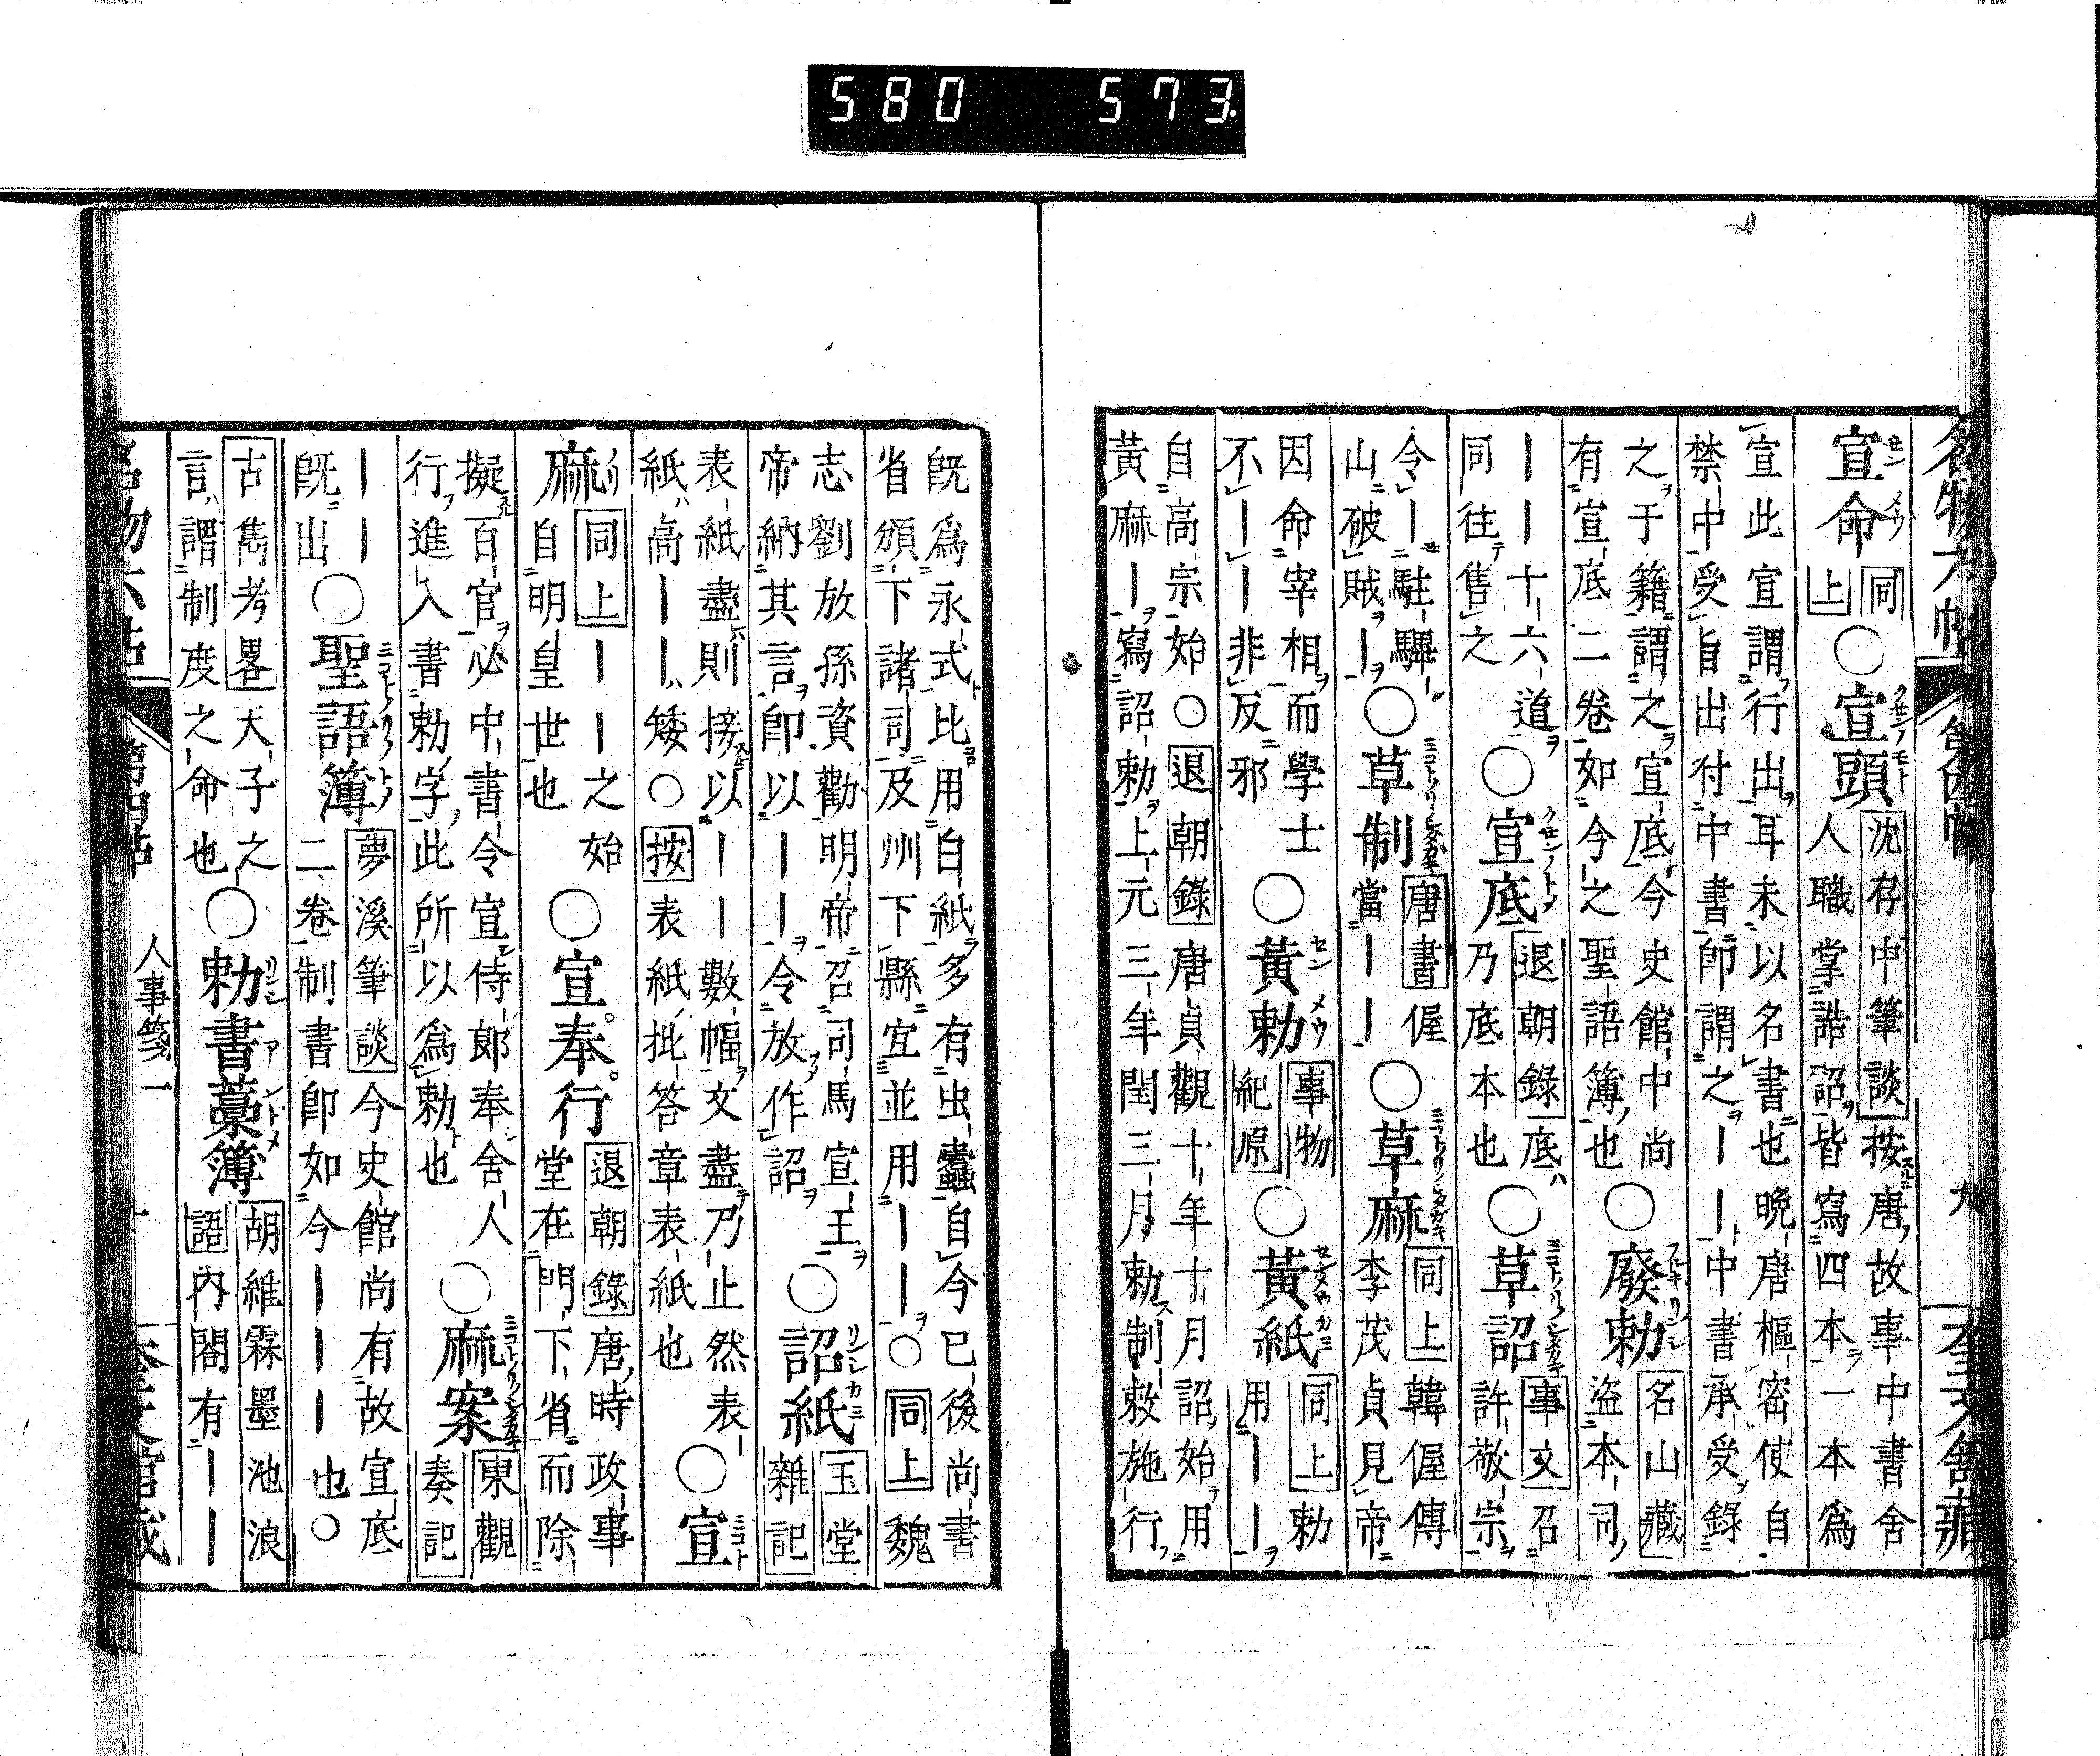 580 573
名物六帖 第四帖 九 奎文舘藏
宣命 同上 ○宣頭 沈存中筆談 按唐故事中書舍人職掌誥詔皆寫四本一本爲
宣此宣謂行出耳未以名書也晚唐樞密使自禁中受旨出付中書卽謂之――中書承受錄
之于籍謂之宣底今史館中尚有宣底二卷如今之聖語簿也 ○廢勅 名山藏 盜本司
――十六道同往售之 ○宣底 退朝錄 底乃底本也 ○草詔 事文 召許敬宗
令―駐驆山破賊― ○草制 唐書 偓當―― ○草麻 同上 韓偓傳李茂貞見帝
因命宰相而學士不――非反邪 ○黃勅 事物紀原 ○黃紙 同上 勅用――
自高宗始○退朝錄 唐貞觀十年十月詔始用黃麻―寫詔勅上元三年閏三月勅制敕施行
旣爲永式比用白紙多有出蠹自今已後尚書省頒下諸司及州下縣宜並用――○同上 魏
志劉放孫資勸明帝召司馬宣王帝納其言卽以――令放作詔 ○詔紙 玉堂雜記
表紙盡則接以――數幅文盡乃止然表紙高――矮○按 表紙批答章表紙也 ○宣
麻 同上 ――之始自明皇世也 ○宣奉行 退朝錄 唐時政事堂在門下省而除
擬百官必中書令宣侍郞奉舍人行進入書勅字此所以爲勅也 ○麻案 東觀奏記
――旣出 ○聖語簿 夢溪筆談 今史館尚有故宣底二卷制書卽如今―――也○
古雋考畧 天子之言謂制度之命也 ○勅書藁簿 胡維霖墨池浪語 內閣有――
名物六帖 第四帖 人事箋一 十 奎文舘藏